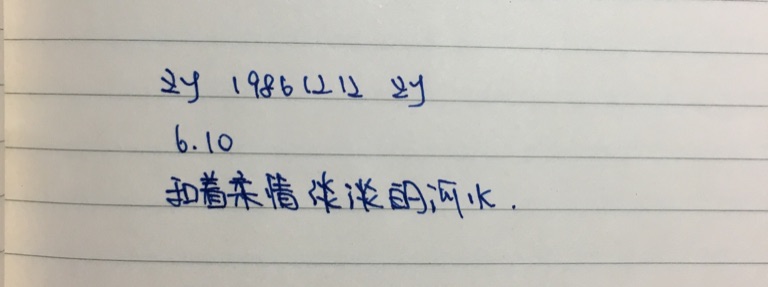 zy 19861212 zy
6.10
和着亲情淡淡的河水.